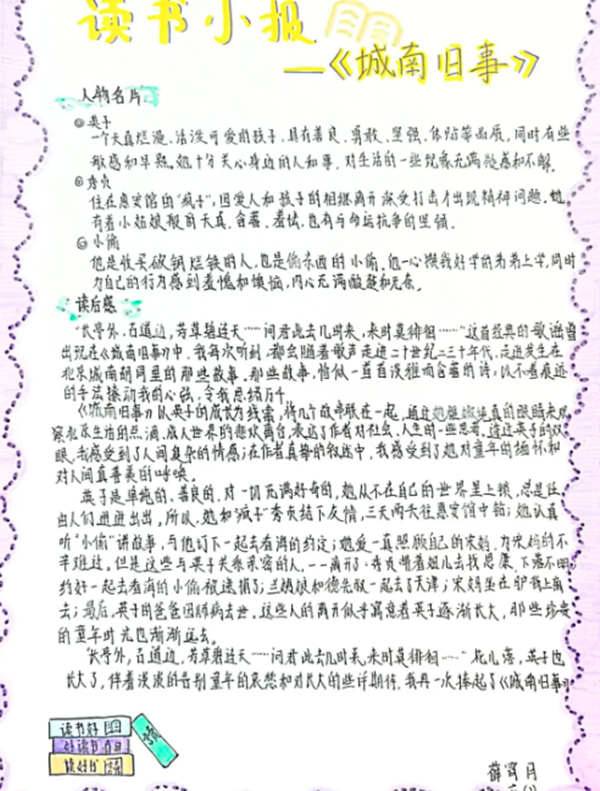 读书小报
—《城南旧事》
人物名片
◎英子
一个天真烂漫、活泼可爱的孩子，具有善良、勇敢、坚强、体贴等品质，同时有些
敏感和早熟。她十分关心身边的人和事，对生活的一些现象充满疑惑和不解。
◎秀贞
住在惠安馆的"疯子"，因爱人和孩子的相继离开深受打击才出现精神问题。她
有着小姑娘般的天真、含蓄、羞怯，也有与命运抗争的坚韧。
◎小偷
他是收买破铜烂铁的人，也是偷东西的小偷。他一心供我好学的弟弟上学，同时
为自己的行为感到羞愧和烦恼，内心充满酸楚和无奈。
读后感
"长亭外，古道边，芳草碧连天……问君此去几时来，来时莫徘徊……"这首经典的歌谣
出现在《城南旧事》中，我每次听到，都会随着歌声走进二十世纪二三十年代，走进发生在
北京城南胡同里的那些故事。那些故事，恰似一首首淡雅而含蓄的诗，以不着痕迹
的手法撩动我的心弦，令我思绪万千。
《城南旧事》以英子的成长为线索，将几个故事联在一起，通过她那双纯真的眼睛来观
察北京生活的点滴、成人世界的悲欢离合，表达了作者对社会、人生的一些思考。透过英子的双
眼，我感受到了人间复杂的情感；在作者真挚的叙述中，我感受到了她对童年的缅怀和
对人间真善美的呼唤。
英子是单纯的、善良的，对一切充满好奇的，她从不在自己的世界里上锁，总是任
由人们进进出出。所以，她和"疯子"秀贞结下友情，三天两头往惠安馆中钻；她认真
听"小偷"讲故事，与他订下一起去看海的约定；她爱一直照顾自己的宋妈，为宋妈的不
幸难过。但是这些与英子关系亲密的人，一一离开了：秀贞带着妞儿去找思康，下落不明；
约好一起去看海的小偷被逮捕了；兰姨娘和德先叔一起去了天津；宋妈坐在驴背上离
去；最后，英子的爸爸因肺病去世。这些人的离开似乎寓意着英子逐渐长大，那些珍贵
的童年时光也渐渐远去。
"长亭外，古道边，芳草碧连天……问君此去几时来，来时莫徘徊……"花儿落，英子也
长大了，伴着淡淡的告别童年的哀愁和对长大的些许期待，我再一次捧起了《城南旧事》
读书好
好读书
读好书
薛
月